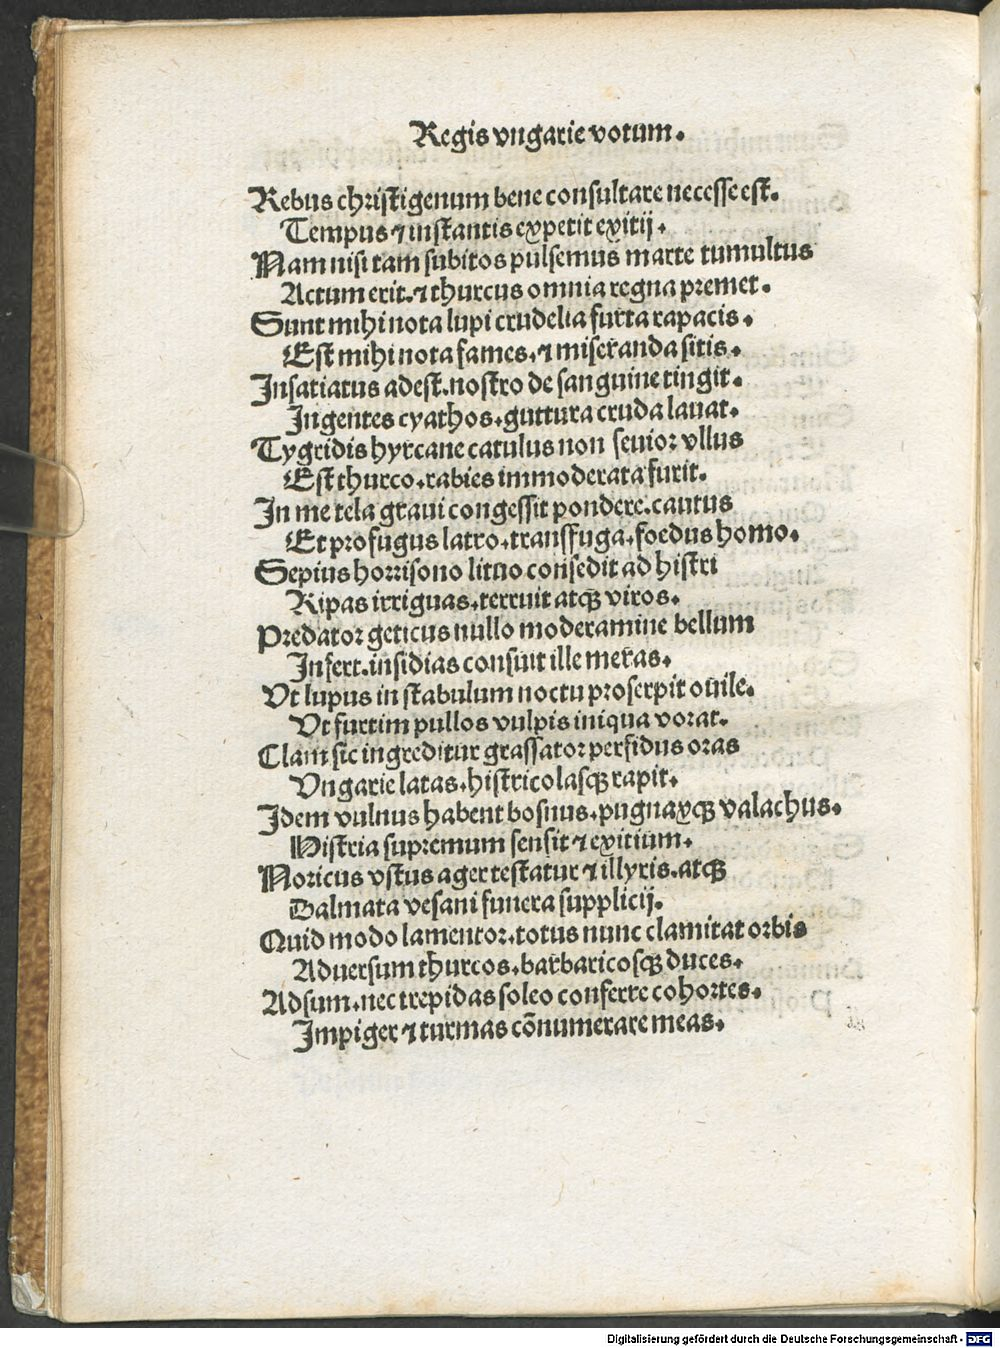 Regis vngarie votum.
Rebus christigenum bene consultare necesse est.
Tempus ⁊ instantis expetit exitij.
Nam nisi tam subitos pulsemus marte tumultus
Actum erit.⁊ thurcus omnia regna premet.
Sunt mihi nota lupi crudelia furta rapacis.
Est mihi nota fames.⁊ miseranda sitis.
Insatiatus adest.nostro de sanguine tingit.
Ingentes cyathos.guttura cruda lauat.
Tygridis hyrcane catulus non seuior vllus
Est thurco.rabies immoderata furit.
In me tela graui congessit pondere.cautus
Et profugus latro.transffuga.foedus homo.
Sepius horrisono lituo consedit ad histri
Ripas irriguas.terruit atqꝫ viros.
Predator geticus nullo moderamine bellum
Infert.insidias consuit ille meras.
Vt lupus in stabulum noctu proserpit ouile.
Vt furtim pullos vulpis iniqua vorat.
Clam sic ingreditur grassator perfidus oras
Vngarie latas.histricolasqꝫ rapit.
Idem vulnus habent bosnus.pugnaxqꝫ valachus.
Histria supremum sensit ⁊ exitium.
Noricus vstus ager testatur ⁊ illyris.atqꝫ
Dalmata vesani funera supplicij.
Quid modo lamentor.totus nunc clamitat orbis
Aduersum thurcos.barbaricosqꝫ duces.
Adsum.nec trepidas soleo conferre cohortes.
Impiger ⁊ turmas cōnumerare meas.
Digitalisierung gefördert durch die Deutsche Forschungsgemeinschaft - DFG